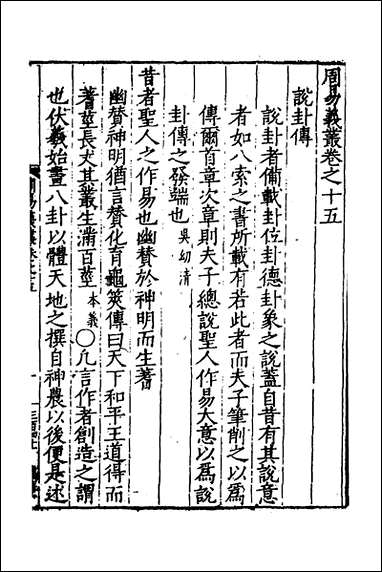 周易義叢卷之十五
說卦傳
說卦者備載卦位卦德卦象之說蓋自昔有其說意
者如八索之書所載有若此者而夫子筆削之以爲
傳爾首章次章則夫子總說聖人作易大意以爲說
卦傳之發端也吳幼清
昔者聖人之作易也幽賛於神明而生蓍
幽賛神明猶言賛化育龜筴傳曰天下和平王道得而
蓍莖長丈其叢生滿百莖本義〇凡言作者創造之謂
也伏羲始畫八卦以體天地之撰自神農以後便是述